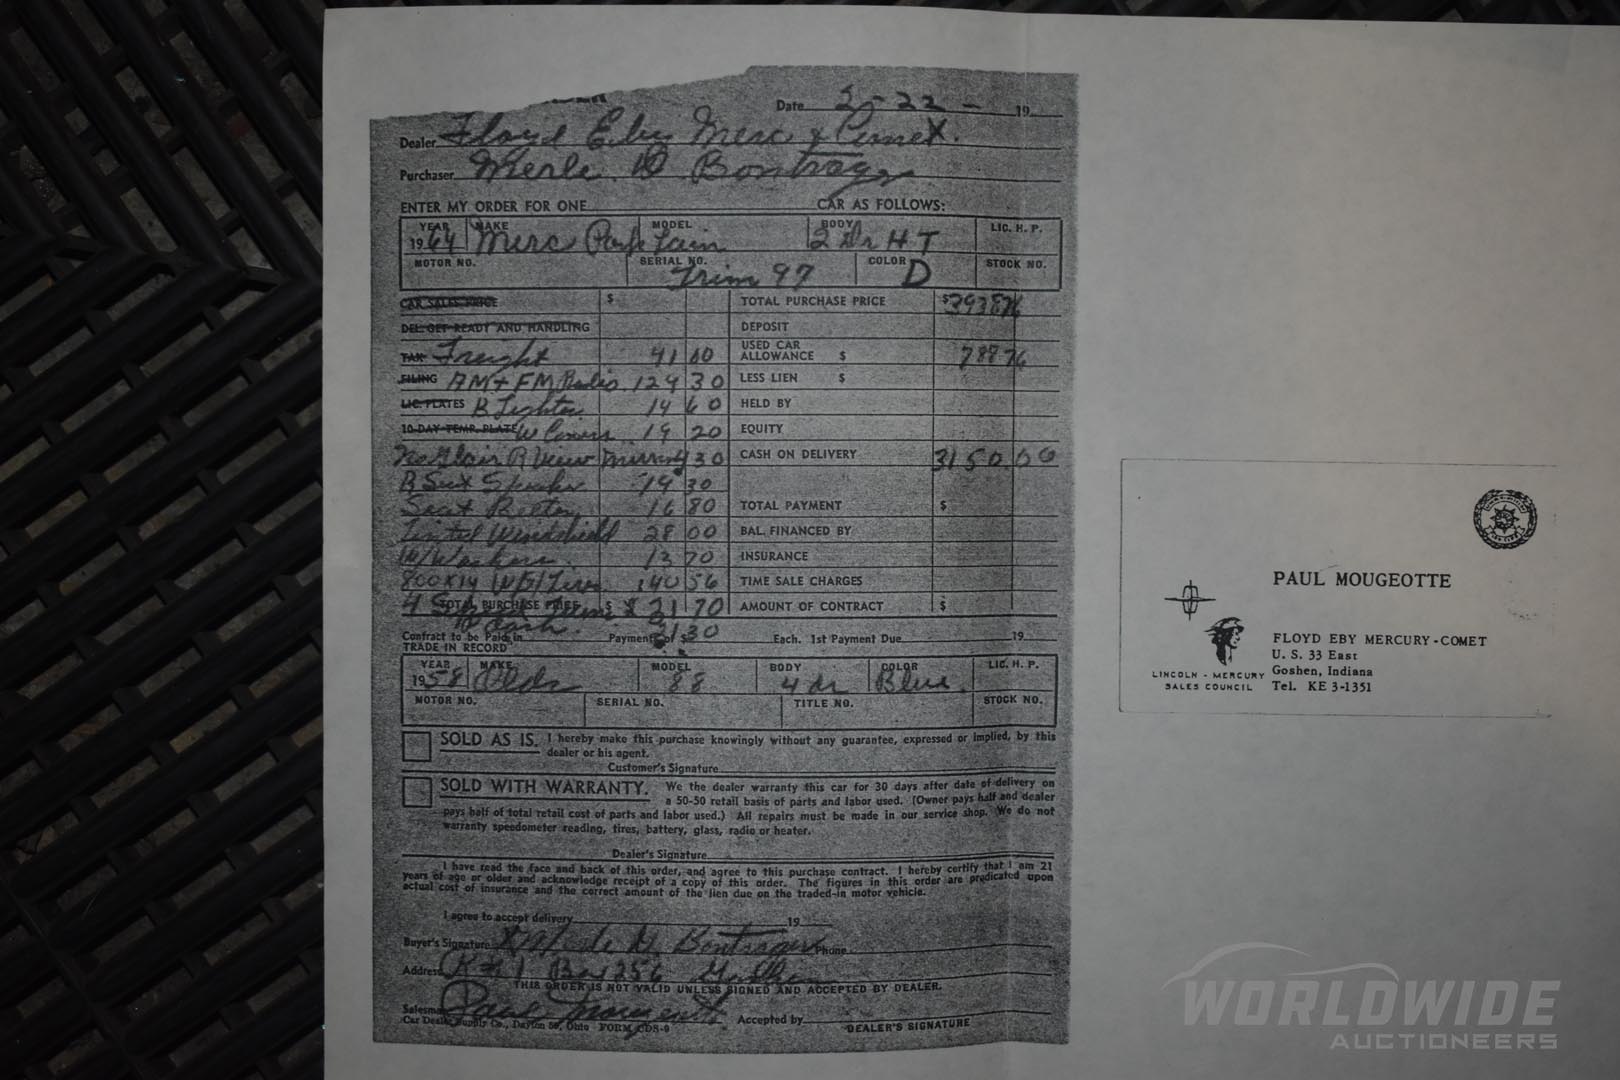 Date 2-22- 19
Dealer Floyd Eby Merc & Comet.
Purchaser Merle D Bontrager
ENTER MY ORDER FOR ONE CAR AS FOLLOWS:
YEAR MAKE MODEL BODY LIC. H. P.
1964 Merc Park Lam 2 Dr H T
MOTOR NO. SERIAL NO. COLOR STOCK NO.
Trim 97 D
CAR SALES PRICE $ TOTAL PURCHASE PRICE $3938 76
DEL. GET READY AND HANDLING DEPOSIT
USED CAR
TAX Freight 41 00 ALLOWANCE $ 788 76
FILING AM + FM Radio 129 30 LESS LIEN $
LIC. PLATES B Lights 14 60 HELD BY
10-DAY TEMP. PLATE W Covers 19 20 EQUITY
No Glair R View Mirror 4 30 CASH ON DELIVERY 3150.00
B Seat Speaker 19 30
Seat Belts 16 80 TOTAL PAYMENT $
Tinted Windshield 28 00 BAL. FINANCED BY
W/Washers 13 70 INSURANCE
800x14 W/Tires 40 56 TIME SALE CHARGES
4 TOTAL PURCHASE PRICE $ 21 70 AMOUNT OF CONTRACT $
Cash 21 30
Contract to be Paid in Payments of $ Each. 1st Payment Due 19
TRADE IN RECORD
YEAR MAKE MODEL BODY COLOR LIC. H. P.
1958 Olds 88 4 dr Blue
MOTOR NO. SERIAL NO. TITLE NO. STOCK NO.
SOLD AS IS. I hereby make this purchase knowingly without any guarantee, expressed or implied, by this
dealer or his agent.
Customer's Signature
SOLD WITH WARRANTY. We the dealer warranty this car for 30 days after date of delivery on
a 50-50 retail basis of parts and labor used. (Owner pays half and dealer
pays half of total retail cost of parts and labor used.) All repairs must be made in our service shop. We do not
warranty speedometer reading, tires, battery, glass, radio or heater.
Dealer's Signature
I have read the face and back of this order, and agree to this purchase contract. I hereby certify that I am 21
years of age or older and acknowledge receipt of a copy of this order. The figures in this order are predicated upon
actual cost of insurance and the correct amount of the lien due on the traded-in motor vehicle.
I agree to accept delivery 19
Buyer's Signature X Merle D. Bontrager Phone
Address R#1 Box 256
THIS ORDER IS NOT VALID UNLESS SIGNED AND ACCEPTED BY DEALER.
Salesman Paul Accepted by
Car Dealer Supply Co., Dayton 59, Ohio FORM CDS-9 DEALER'S SIGNATURE
PAUL MOUGEOTTE
LINCOLN - MERCURY
SALES COUNCIL
FLOYD EBY MERCURY-COMET
U. S. 33 East
Goshen, Indiana
Tel. KE 3-1351
WORLDWIDE
AUCTIONEERS